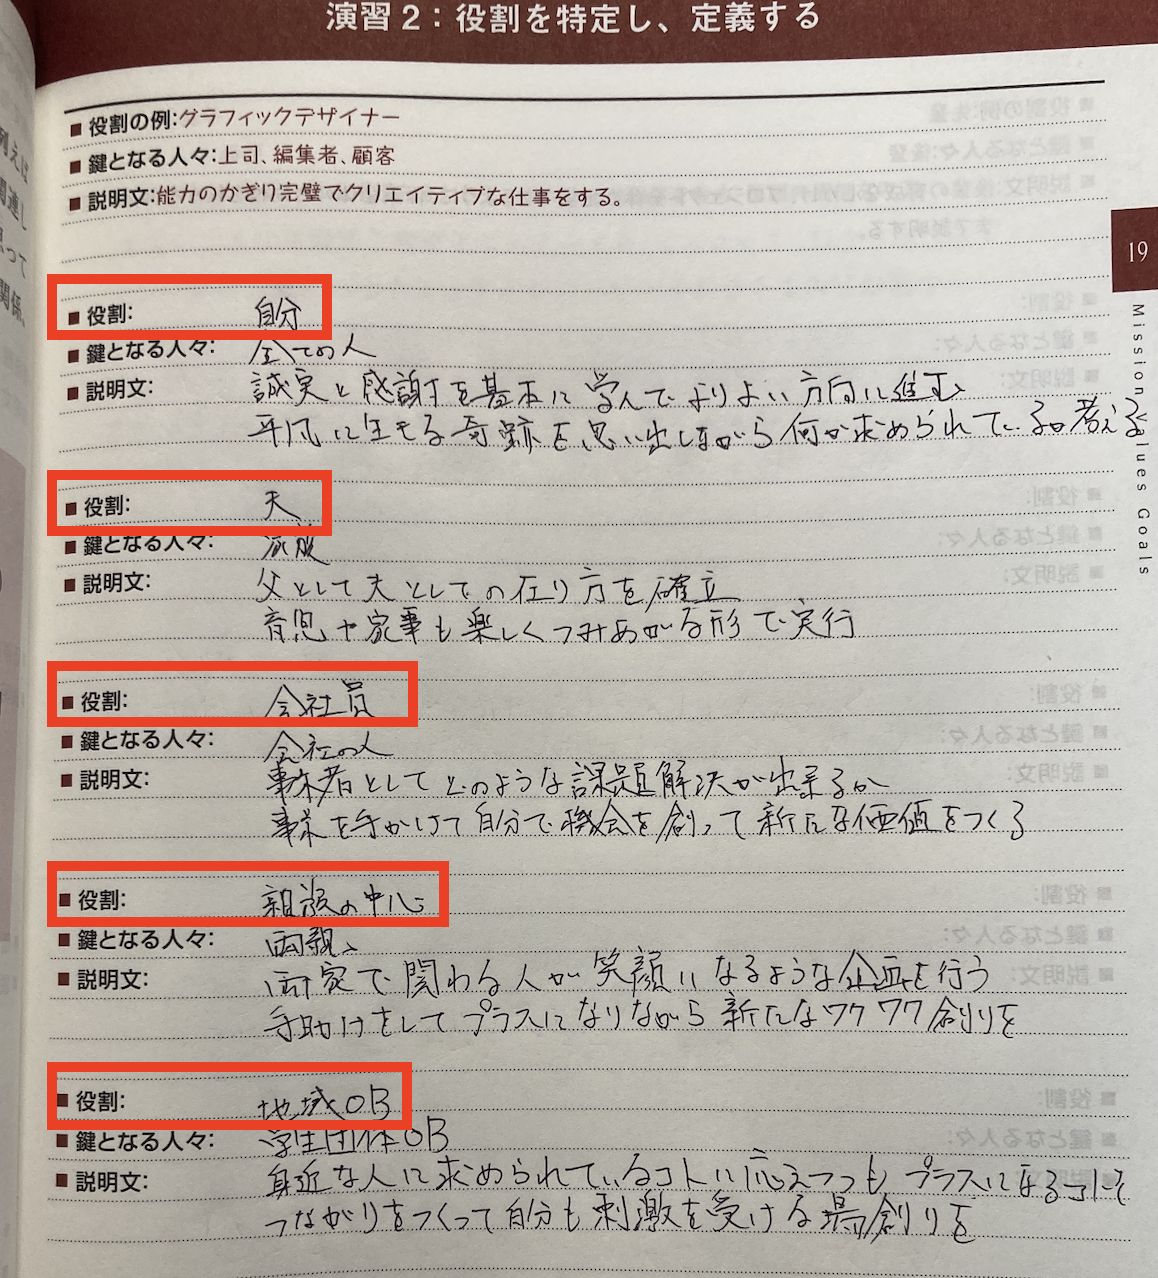 演習2:役割を特定し、定義する
■役割の例:グラフィックデザイナー
■鍵となる人々:上司、編集者、顧客
■説明文:能力のかぎり完璧でクリエイティブな仕事をする。
■役割: 自分
■鍵となる人々: 全ての人
■説明文: 誠実と感謝を基本に学んでよりよい方向に進む、
平凡に生きる奇跡を思い出しながら何か求められているか考える
■役割: 夫
■鍵となる人々: 家族
■説明文: 父として夫としての在り方を確立
育児や家事も楽しくつみあがる形で実行
■役割: 会社員
■鍵となる人々: 会社の人
■説明文: 事業者としてどのような課題解決が出来るか
事業を手がけて自分で機会を創って新たな価値をつくる
■役割: 親族の中心
■鍵となる人々: 両親、
■説明文: 両家で関わる人が笑顔になるような企画を行う
手助けをしてプラスになりながら新たなワクワク創りを
■役割: 地域OB
■鍵となる人々: 学生団体OB
■説明文: 身近な人に求められているコトに応えつつも プラスになるコトにそ
つながりをつくって自分も刺激を受ける場創りを
19
Mission Values Goals